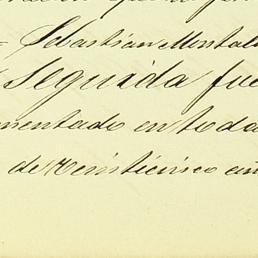 Sebastián Montal
Seguida fue
mentado en toda
de veinticinco añ